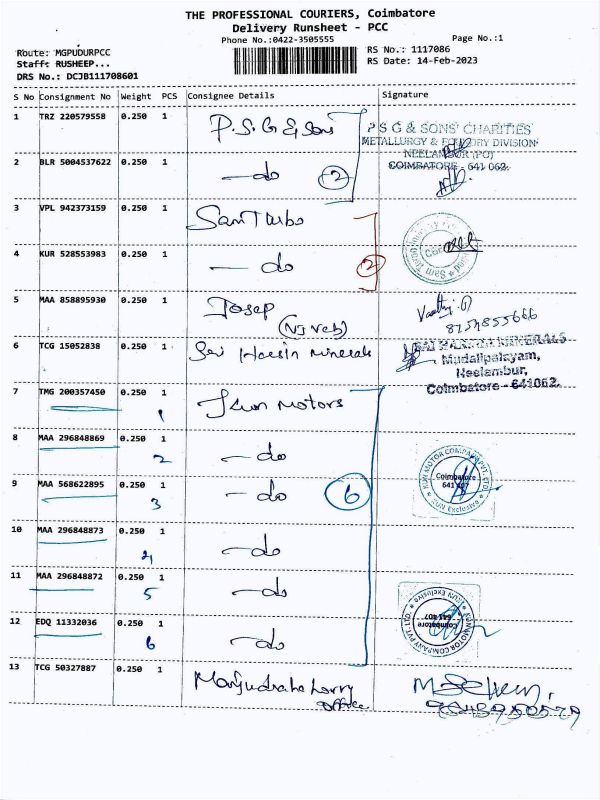 THE PROFESSIONAL COURIERS, Coimbatore
Delivery Runsheet - PCC
Phone No.:0422-3505555
Page No.:1
Route: MGPUDURPCC
RS No.: 1117086
Staff: RUSHEEP...
RS Date: 14-Feb-2023
DRS No.: DCJB111708601
S No Consignment No Weight PCS Consignee Details Signature
1 TRZ 220579558 0.250 1 P.S.G & Sons
P S G & SONS' CHARITIES
METALLURGY & FOUNDRY DIVISION
NEELAMBUR (PO)
COIMBATORE - 641 062.
2 BLR 5004537622 0.250 1 — do 2
3 VPL 942373159 0.250 1 Sam Turbo
4 KUR 528553983 0.250 1 — do 2
5 MAA 858895930 0.250 1 Josep
8754855666
6 TCG 15052838 0.250 1 Sri Hossin Minerals
SAI MINERALS
Mudalipalayam,
Neelambur,
Coimbatore - 641062.
7 TMG 200357450 0.250 1 1 Kun Motors
8 MAA 296848869 0.250 1 2 — do
KUN MOTOR COMPANY PVT. LTD.
Coimbatore
641 407
KUN Exclusive
9 MAA 568622895 0.250 1 3 — do 6
10 MAA 296848873 0.250 1 4 — do
11 MAA 296848872 0.250 1 5 — do
KUN MOTOR COMPANY PVT. LTD.
Coimbatore
641 407
KUN Exclusive
12 EDQ 11332036 0.250 1 6 — do
13 TCG 50327887 0.250 1 Lorry
office